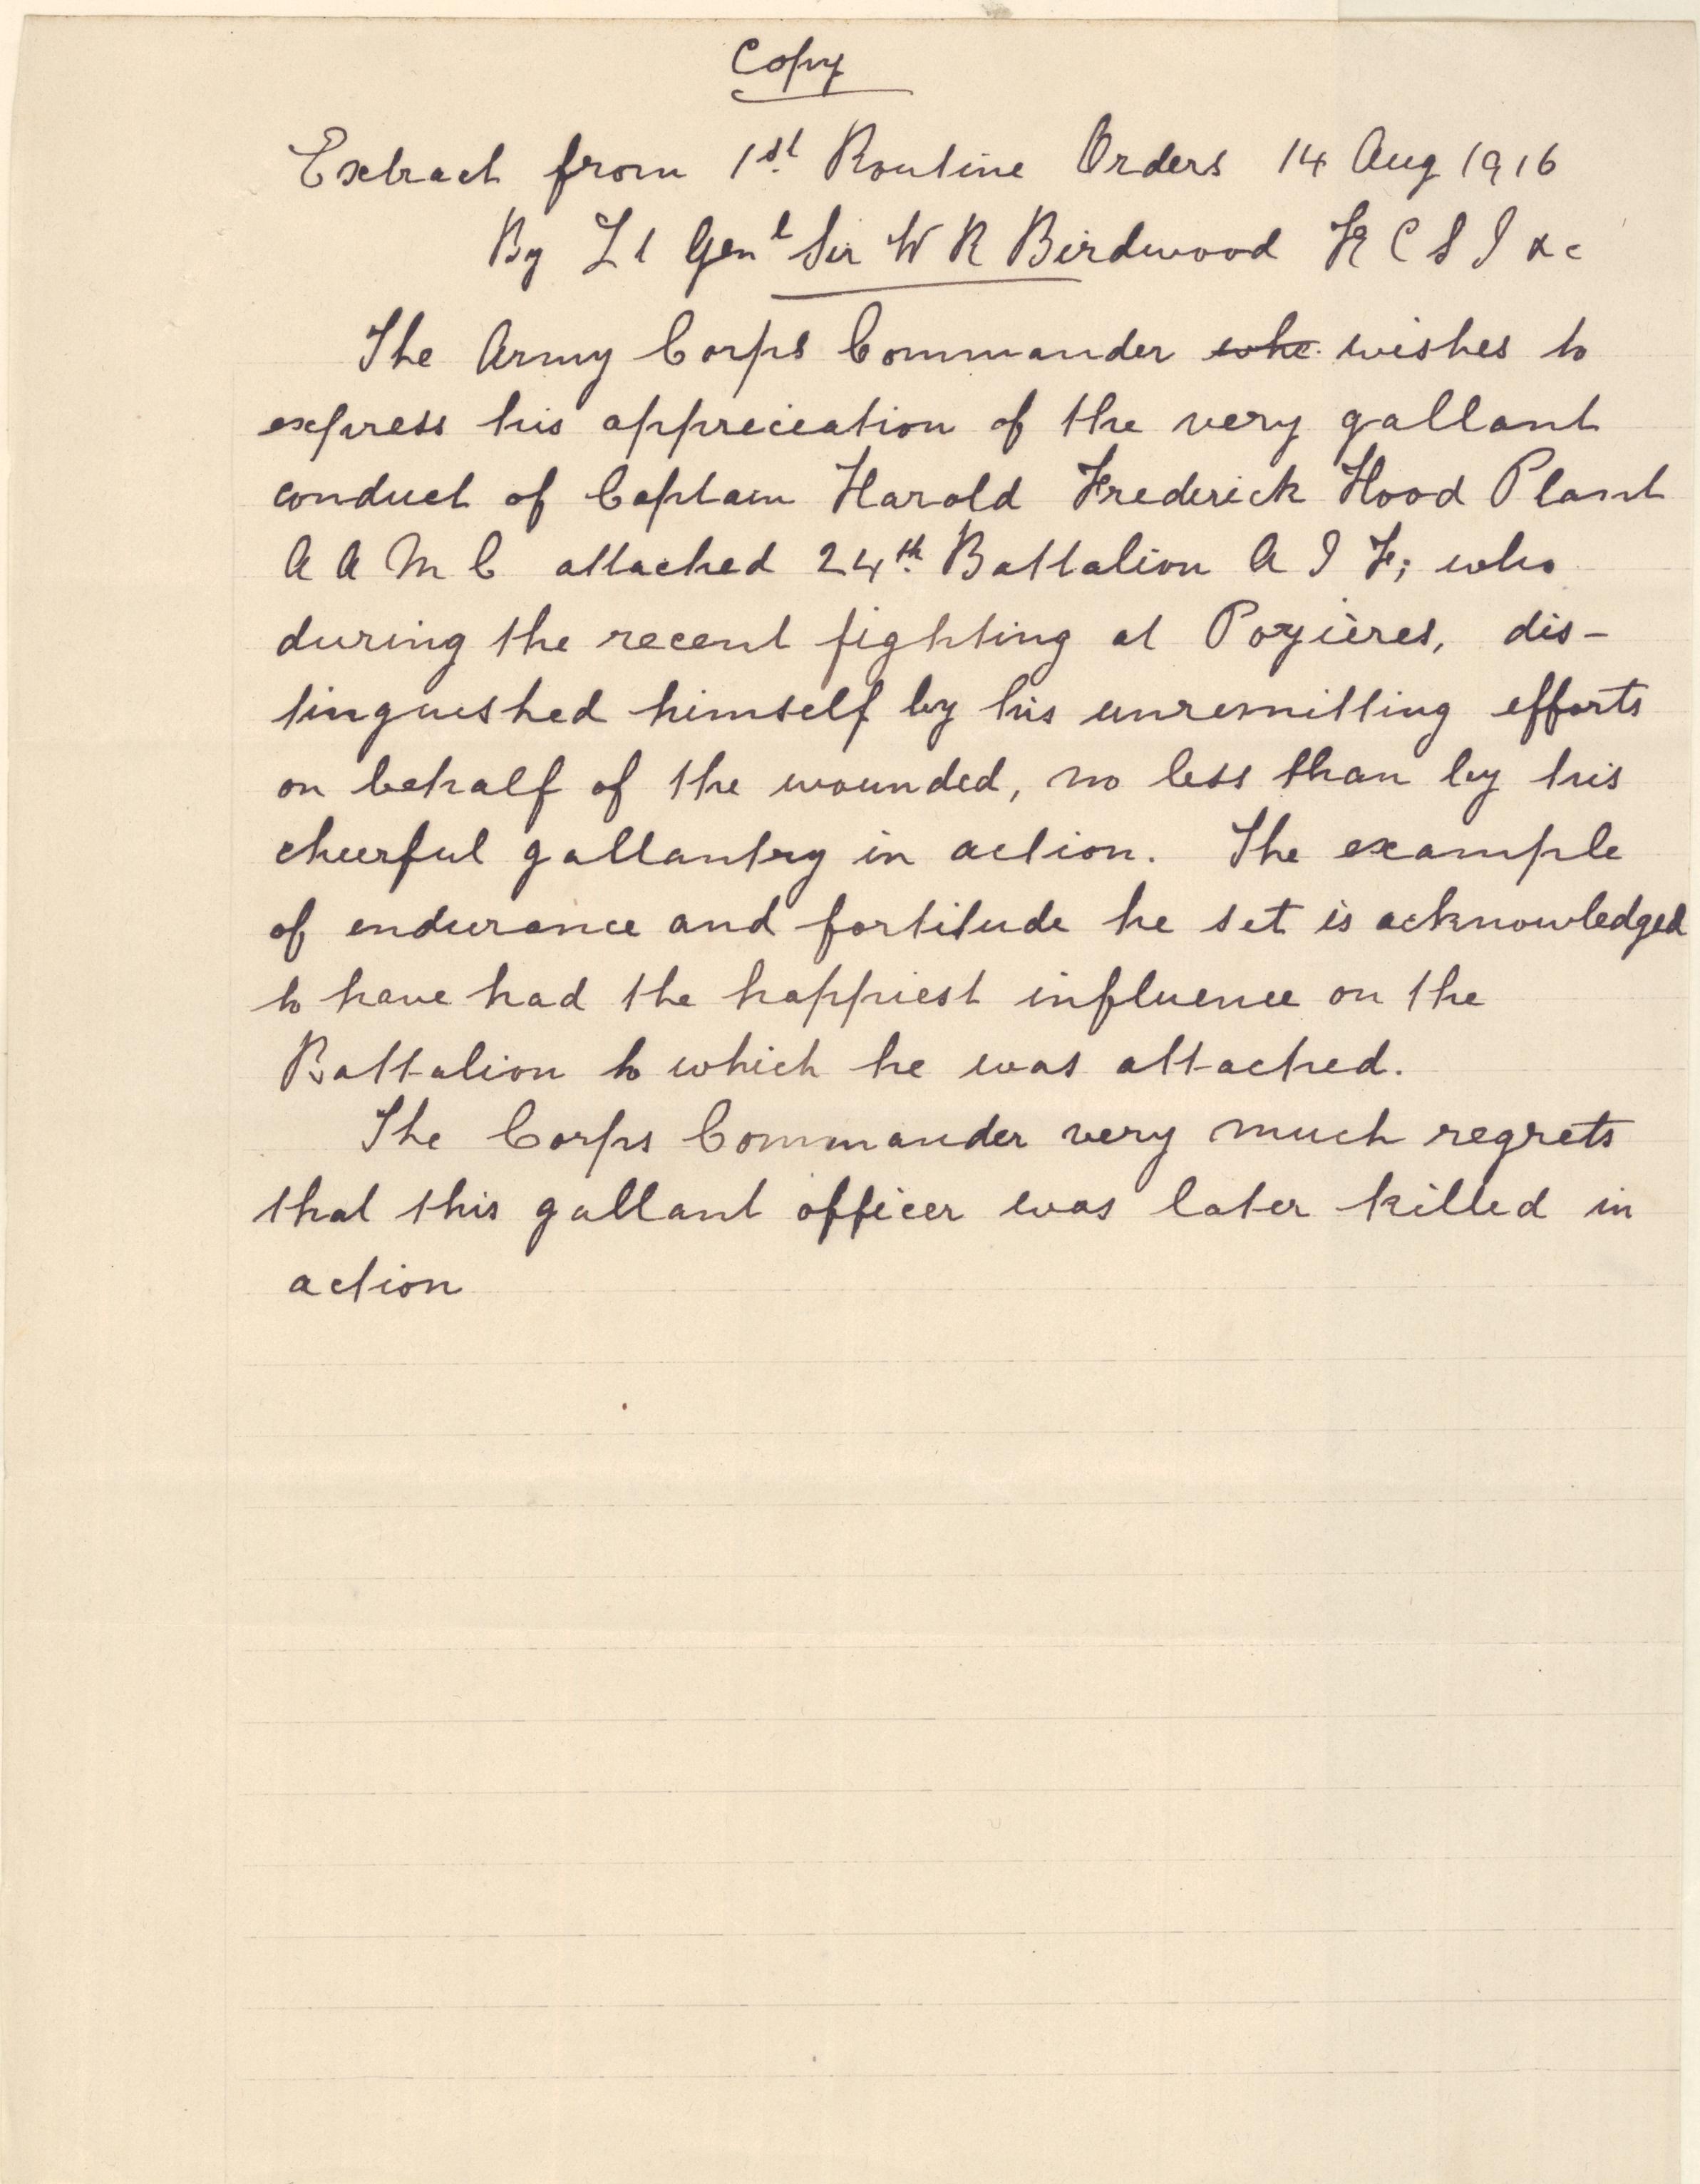 Copy
Extract from 1st Routine Orders 14 Aug 1916
By Lt Genl Sir W R Birdwood K C S I &c
The Army Corps Commander who wishes to
express his appreciation of the very gallant
conduct of Captain Harold Frederick Hood Plant
A A M C attached 24th Battalion A I F; who
during the recent fighting at Pozières, dis-
tinguished himself by his unremitting efforts
on behalf of the wounded, no less than by his
cheerful gallantry in action. The example
of endurance and fortitude he set is acknowledged
to have had the happiest influence on the
Battalion to which he was attached.
The Corps Commander very much regrets
that this gallant officer was later killed in
action